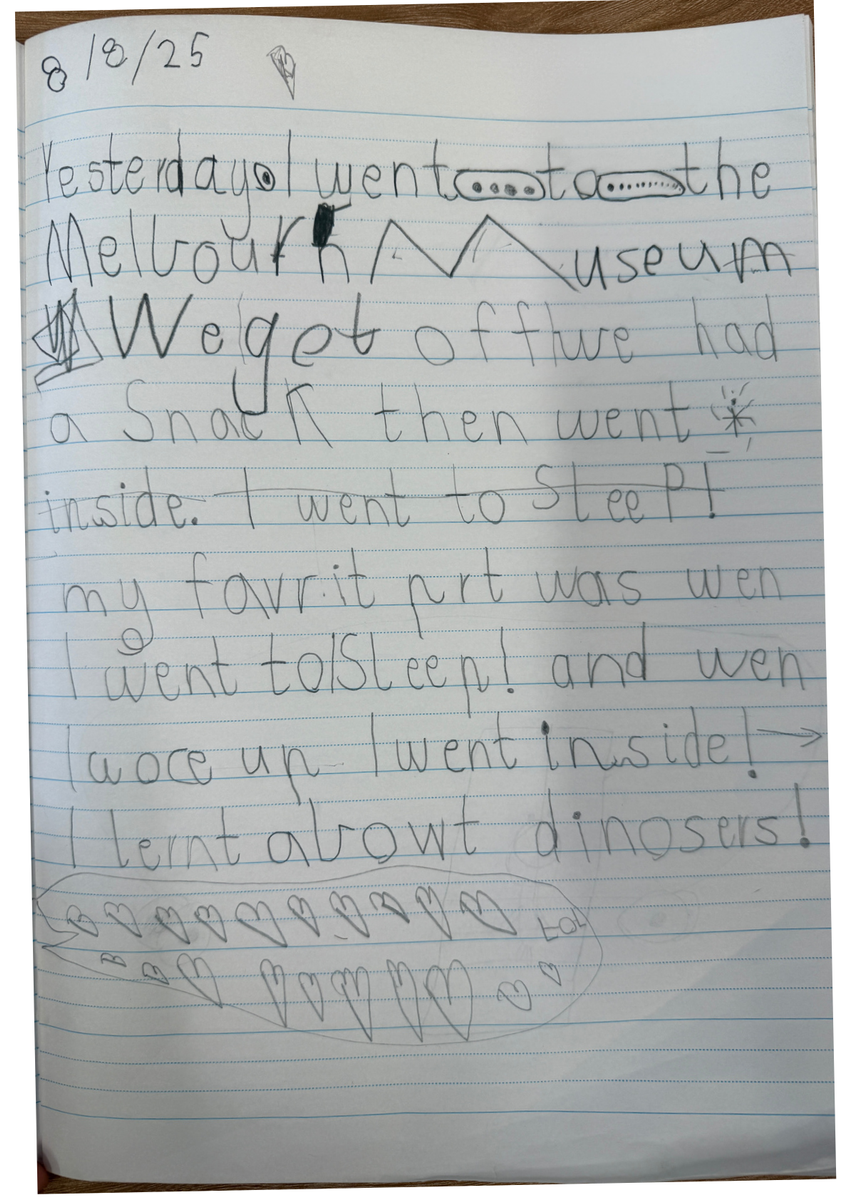 8/8/25
Yesterday I went to the
Melbourn Museum
We got off we had
a Snack then went
inside. I went to SleeP!
my favrit prt was wen
I went to Sleep! and wen
I woce up I went inside!
I lernt abowt dinosers!
For